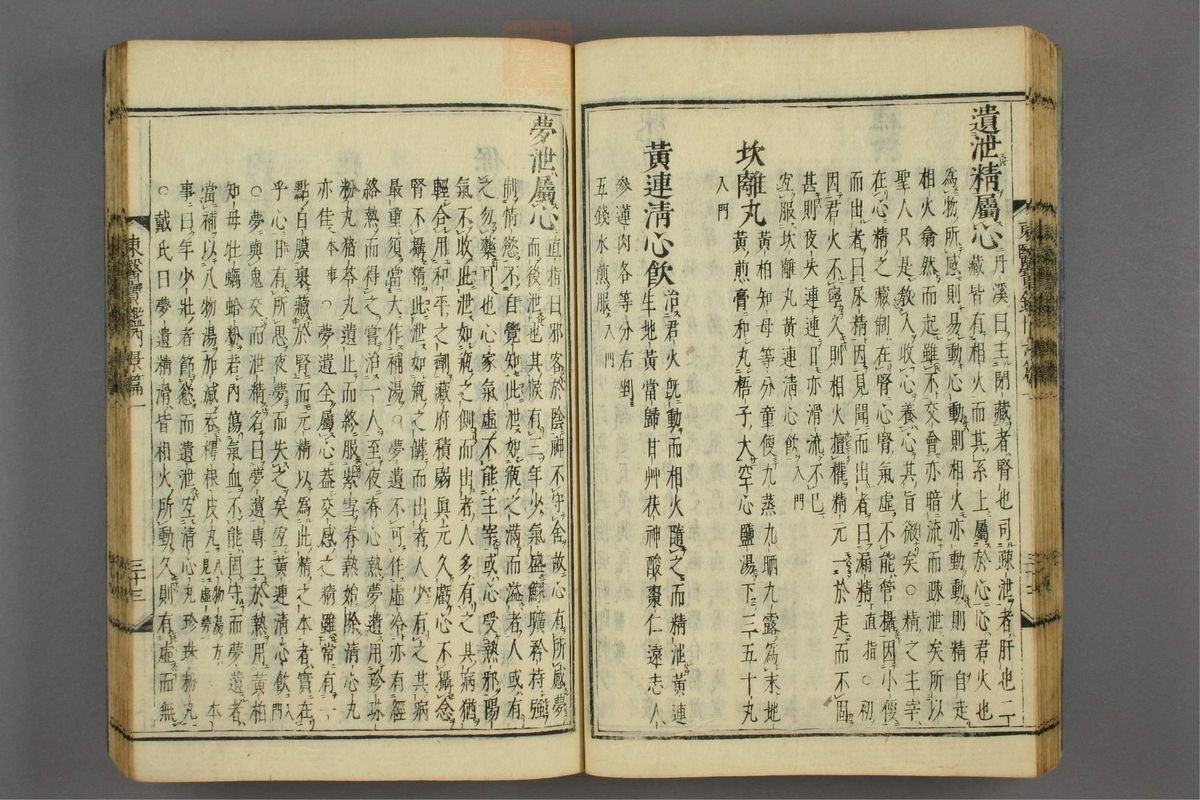 遺泄精屬心 丹溪曰主閉藏者腎也司疎泄者肝也二
藏皆有相火而其系上屬於心心君火也
為物所感則易動心動則相火亦動動則精自走
相火翕然而起雖不交會亦暗流而疎泄矣所以
聖人只是敎人收心養心其旨微矣○精之主宰
在心精之藏制在腎心腎氣虛不能管攝因小便
而出者曰尿精因見聞而出者曰漏精直指○初
因君火不寧久則相火擅權精元一於走而不固
甚則夜失連連日亦滑流不已
宜服坎離丸黃連淸心飮入門
坎離丸 黃柏知母等分童便九蒸九晒九露為末地
黃煎膏和丸梧子大空心鹽湯下三五十丸
入門
黃連淸心飮 治君火旣動而相火隨之而精泄黃連
生地黃當歸甘艸茯神酸棗仁遠志人
參蓮肉各等分右剉
五錢水煎服入門
東醫寶鑑內景篇一 三十三
夢泄屬心 直指曰邪客於陰神不守舍故心有所感夢
而後泄也其候有三年少氣盛鰥曠矜持強
制情慾不自覺知此泄如甁之滿而溢者人或有
之勿藥可也心家氣虛不能主宰或心受熱邪陽
氣不收此泄如甁之側而出者人多有之其病猶
輕合用和平之劑藏府積弱眞元久虧心不攝念
腎不攝精此泄如甁之罅而出者人少有之其病
最重須當大作補湯○夢遺不可作虛冷亦有經
絡熱而得之嘗治一人至夜脊心熱夢遺用珍珠
粉丸猪苓丸遺止而終服紫雪脊熱始除淸心丸
亦佳本事○夢遺全屬心蓋交感之精雖常有一
點白膜裹藏於腎而元精以為此精之本者實在
乎心日有所思夜夢而失之矣宜黃連淸心飮入門
○夢與鬼交而泄精名曰夢遺專主於熱用黃柏
知母牡蠣蛤粉若內傷氣血不能固守而夢遺者
當補以八物湯加減呑樗根皮丸八物湯方見虛勞本
事曰年少壯者節慾而遺泄宜淸心丸珍珠粉丸
○戴氏曰夢遺精滑皆相火所動久則有虛而無